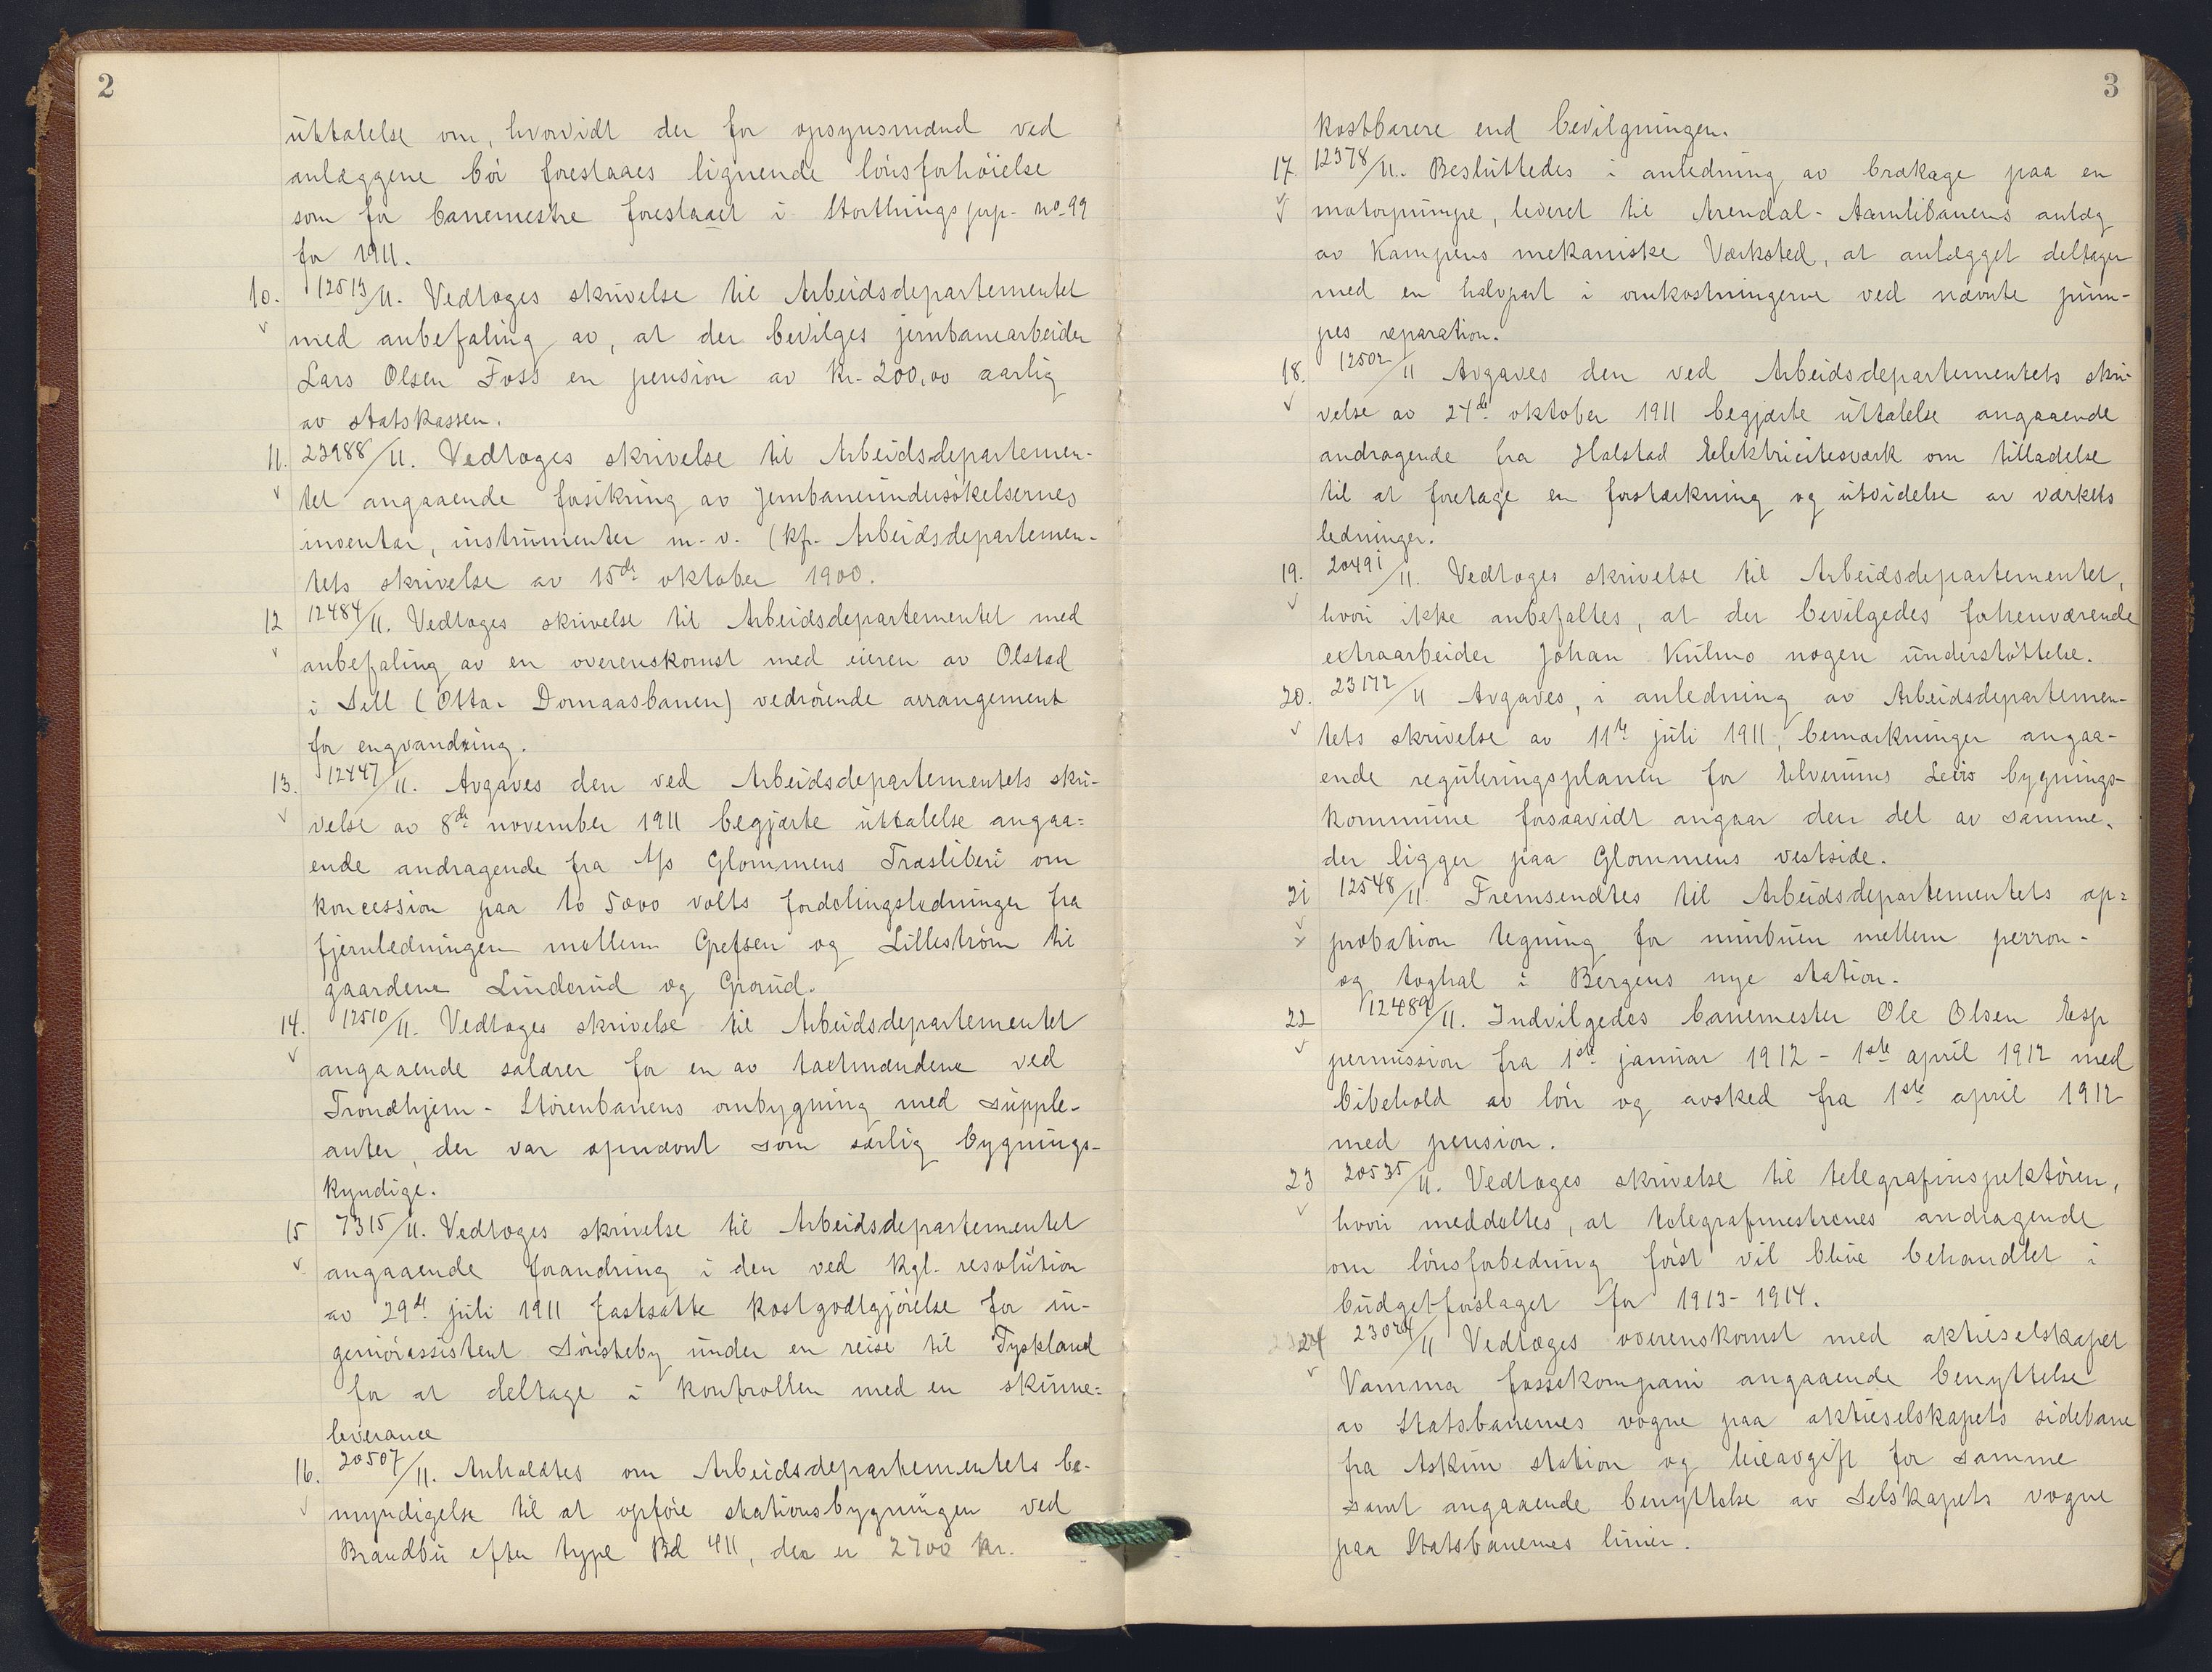 2
uttalelse om, hvorvidt der for opsynsmænd ved
anlæggene bør foreslaaes lignende lønsforhøielse
som for banemestre foreslaaet i Storthings prp. no. 99
for 1911.
10. 12513/11. Vedtoges skrivelse til Arbeidsdepartementet
med anbefaling av, at der bevilges jernbanearbeider
Lars Olsen Foss en pension av Kr. 200,00 aarlig
av statskassen.
11. 23988/11. Vedtoges skrivelse til Arbeidsdepartemen-
tet angaaende forsikring av Jernbaneundersøkelsernes
inventar, instrumenter m. v. (kfr. Arbeidsdepartemen-
tets skrivelse av 15de oktober 1900.
12 12484/11. Vedtoges skrivelse til Arbeidsdepartementet med
anbefaling av en overenskomst med eieren av Olstad
i Sell (Otta- Domaasbanen) vedrørende arrangement
for engvandring.
13. 12447/11. Avgaves den ved Arbeidsdepartementets skri-
velse av 8de november 1911 begjærte uttalelse angaa=
ende andragende fra A/s Glommens Træsliberi om
koncession paa to 5000 volts fordelingsledninger fra
fjernledningen mellem Grefsen og Lillestrøm til
gaardene Linderud og Grorud.
14. 12510/11. Vedtoges skrivelse til Arbeidsdepartementet
angaaende salærer for en av taxtmændene ved
Trondhjem - Størenbanens ombygning med supple-
anter, der var opnævnt som særlig bygnings-
kyndige.
15 7315/11. Vedtoges skrivelse til Arbeidsdepartementet
angaaende forandring i den ved Kgl. resolution
av 29de juli 1911 fastsatte kostgodtgjørelse for in-
geniørassistent Sørsteby under en reise til Tyskland
for at deltage i kontrollen med en skinne=
leverance
16. 20507/11. Anholdtes om Arbeidsdepartementets be-
myndigelse til at opføre stationsbygningen ved
Brandbu efter type Bd 411, der er 2700 kr.
3
kostbarere end bevilgningen.
17. 12378/11. Besluttedes i anledning av brækage paa en
motorpumpe, leveret til Arendal - Aamlibanens anlæg
av Kampens mekaniske Værksted, at anlægget deltager
med en halvpart i omkostningerne ved nævnte pum-
pes reparation.
18. 12502/11 Avgaves den ved Arbeidsdepartementets skri-
velse av 24de oktober 1911 begjærte uttalelse angaaende
andragende fra Halstad Elektricitesværk om tilladelse
til at foretage en forstærkning og utvidelse av værkets
ledninger.
19. 20491/11. Vedtoges skrivelse til Arbeidsdepartementet,
hvori ikke anbefaltes, at der bevilgedes forhenværende
extraarbeider Johan Kulmo nogen understøttelse.
20. 23172/11 Avgaves, i anledning av Arbeidsdepartemen-
tets skrivelse av 11te juli 1911, bemærkninger angaa-
ende reguleringsplanen for Elverums Leirs bygnings-
kommune forsaavidt angaar den del av samme,
der ligger paa Glommens vestside.
21 12548/11. Fremsendtes til Arbeidsdepartementets ap=
probation tegning for murbuen mellem perron-
og toghal i Bergens nye station.
22 12489/11. Indvilgedes banemester Ole Olsen Esp
permission fra 1ste januar 1912 - 1ste april 1912 med
bibehold av løn og avsked fra 1ste april 1912
med pension.
23 20535/11. Vedtoges skrivelse til telegrafinspektøren,
hvori meddeltes, at telegrafmestrenes andragende
om lønsforbedring først vil blive behandlet i
budgetforslaget for 1913-1914.
24 23024/11 Vedtoges overenskomst med aktieselskapet
Vamma fossekompani angaaende benyttelse
av Statsbanernes vogne paa aktieselskapets sidebane
fra Askim station og leieavgift for samme
samt angaaende benyttelse av Selskapets vogne
paa Statsbanernes linier.